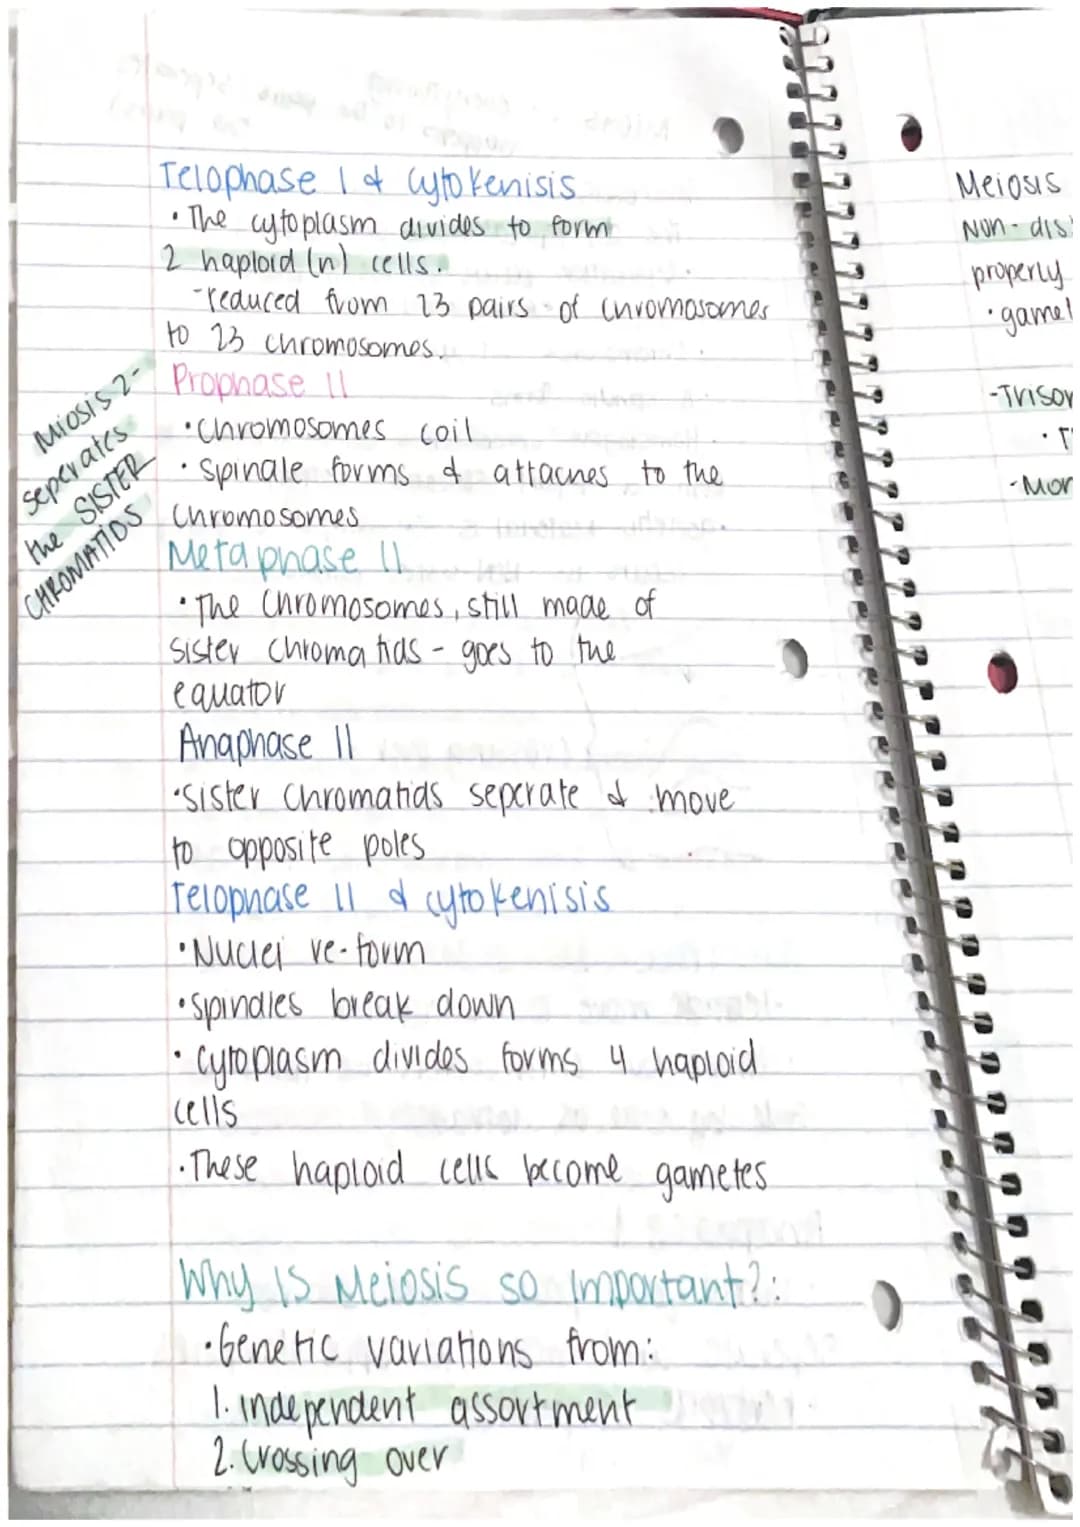 Telophase I & Cytokenisis
• The cytoplasm divides to form
2 haploid (n) cells.
-reduced from 23 pairs of chromosomes
to 23 chromosomes.
Miosis 2-
seperates
the SISTER
CHROMATIDS
Prophase II
• Chromosomes coil
• Spinale forms & attaches to the
Chromosomes
Metaphase II
• The Chromosomes, still made of
sister chromatids - goes to the
equator
Anaphase II
• Sister Chromatids seperate & move
to opposite poles
Telophase II & cytokenisis
• Nuclei re-form
• spindles break down
• Cytoplasm divides forms 4 haploid
cells
• These haploid cells become gametes
Why IS Meiosis so Important?:
• Genetic variations from:
1. independent assortment
2. Crossing over
Meiosis
Non-dis
properly